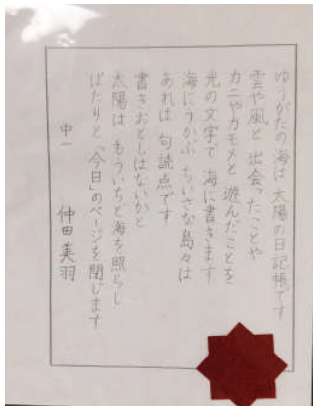 ゆうがたの海は 太陽の日記帳です
雲や風と 出会ったことや
カニやカモメと 遊んだことを
光の文字で 海に書きます
海にうかぶ ちいさな島々は
あれは 句読点です
書きおとしはないかと
太陽は もういちど海を照らし
ぱたりと「今日」のページを閉じます
中一 仲田美羽